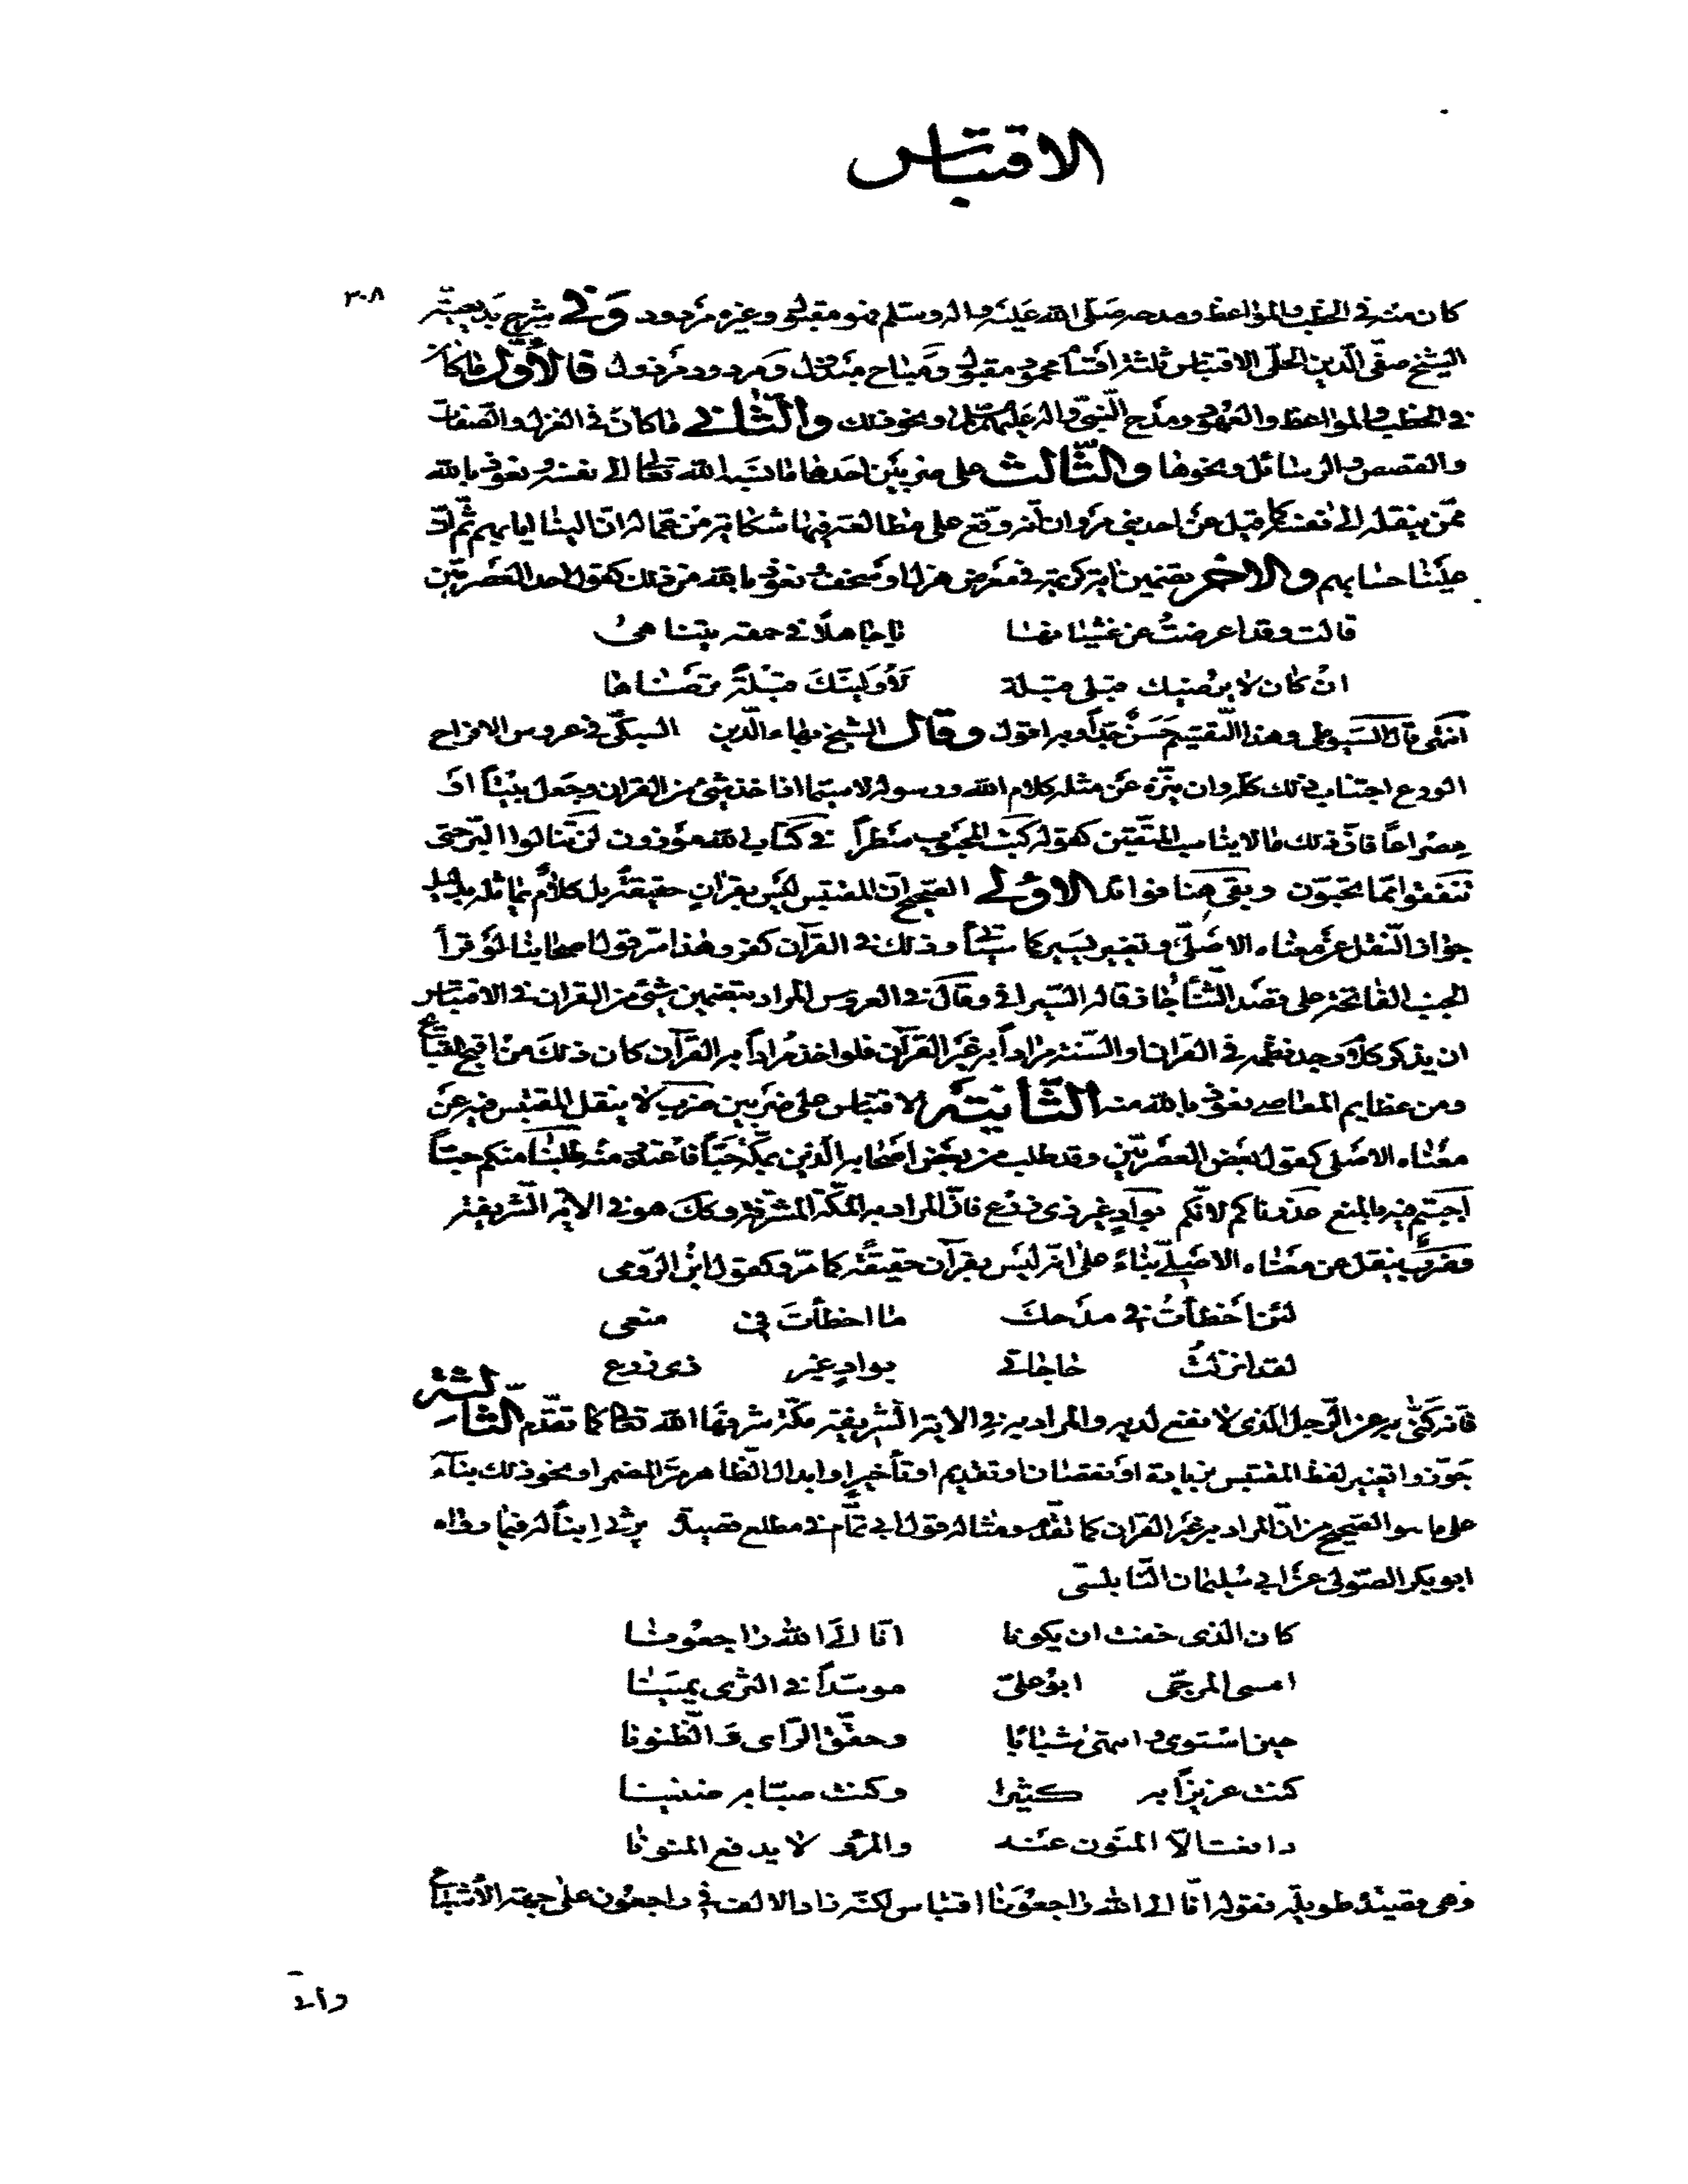 الاقتباس
٣٠٨
كان منه في الخطب والمواعظ ومدحه صلّى الله عليه واله وسلم فهو مقبول وغيره مردود وفي شرح بديعيته
الشيخ صفي الدين الحلّي الاقتباس ثلثة اقسام محمود مقبول ومباح مبتذل ومردود مرذول فالأوّل ما كان
في الخطب والمواعظ والعهود ومدح النبيّ واله ونحو ذلك والثّاني ما كان في الغزل والصّفات
والقصص والرسائل ونحوها والثّالث على ضربين احدهما ما نسبه الله تعالى الى نفسه ونعوذ بالله
ممّن ينقله الى نفسه كما قيل عن احد بني مروان انه وقع على مطالعة فيها شكاية من عماله انّ الينا ايابهم ثمّ انّ
علينا حسابهم والآخر تضمين اية كريمة في معرض هزل او سخف نعوذ بالله من ذلك كقول احد العصريّين
قالت وقد اعرضتُ عن غشيانها يا جاهلاً في حمقه يتناهى
ان كان لا يرضيك قبلي قبلة لأولّينّك قبلةً ترضاها
انتهى قال السيوطي وهذا التّقسيم حَسَنٌ جدّاً وبه اقول وقال الشيخ بهاء الدّين السبكّي في عروس الافراح
الورع اجتناب ذلك كلّه وان ينزّه عن مثله كلام الله ورسوله لا سيّما اذا اخذ شيء من القران وجعل بيتاً او
مصراعاً فانّ ذلك ما لا يناسب المتّقين كقوله كتب المحبوب سطراً في كتاب الله موزون لن تنالوا البرّ حتى
تنفقوا ممّا تحبّون وبقي هنا فوائد الاولى الصّحيح انّ المقتبس ليس بقرانٍ حقيقة بل كلامٌ يماثله بدليل
جواز النّقل عن معناه الاصليّ وتغيير يسير كما سيأتي وذلك في القرآن كفر وهذا سرّ قول اصحابنا لو قرأ
الجنب الفاتحة على قصد الثّناء جاز قاله السّيرافي وقال في العروس المراد بتضمين شيء من القران في الاقتباس
ان يذكر كلام وجد نظمه في القران او السّنّة مراداً به غير القرآن فلو اخذ مراداً به القرآن كان ذلك من اقبح القبائح
ومن عظايم المعاصي نعوذ بالله منه الثّانية الاقتباس على ضربين ضرب لا ينقل المقتبس فيه عن
معناه الاصلي كقول بعض العصريّين وقد طلب من بعض اصحابه الّذين بمكّة حبّاً فاعتذر منه طلبنا منكم حبّاً
اجبتم فيه بالمنع عذرناكم لانّكم بوادٍ غير ذي زرع فانّ المراد به المكّة المشرّفة وكذلك هو في الاية الشّريفة
وضربٌ ينقل عن معناه الاصليّ بناءً على انّه ليس بقرآن حقيقة كما مرّ وكقول ابن الرّومي
لئن اخطأتُ في مدحك ما اخطأتَ في منعي
لقد انزلتُ حاجاتي بوادٍ غير ذي زرع
فانه كنّى به عن الرّجل الّذي لا نفع لديه والمراد به في الاية الشريفة مكّة شرفها الله تعالى كما تقدّم الثّالثة
جوّزوا تغيير لفظ المقتبس بزيادة او نقصان او تقديم او تأخير او ابدال الظّاهر من المضمر او نحو ذلك بناءً
على ما هو الصّحيح من انّ المراد به غير القران كما تقدّم ومثاله قول ابي تمّام في مطلع قصيدة يرثي ابناً له فيما رواه
ابو بكر الصّولي عن ابي سليمان النّابلسيّ
كان الّذي خفت ان يكونا انّا الى الله راجعونا
امسى المرجّى ابو عليّ موسّداً في الثرى يمينا
حين استوى وانتهى شبابا وحقّق الرّأي والظّنونا
كنت عزيزاً به كثيرا وكنت صبّا به ضنينا
دافعت الّا المنون عنه والمرء لا يدفع المنونا
وهي قصيدة طويلة فقوله انّا الى الله راجعونا اقتباس لكنّه زاد الالف في راجعون على جهة الاشباع